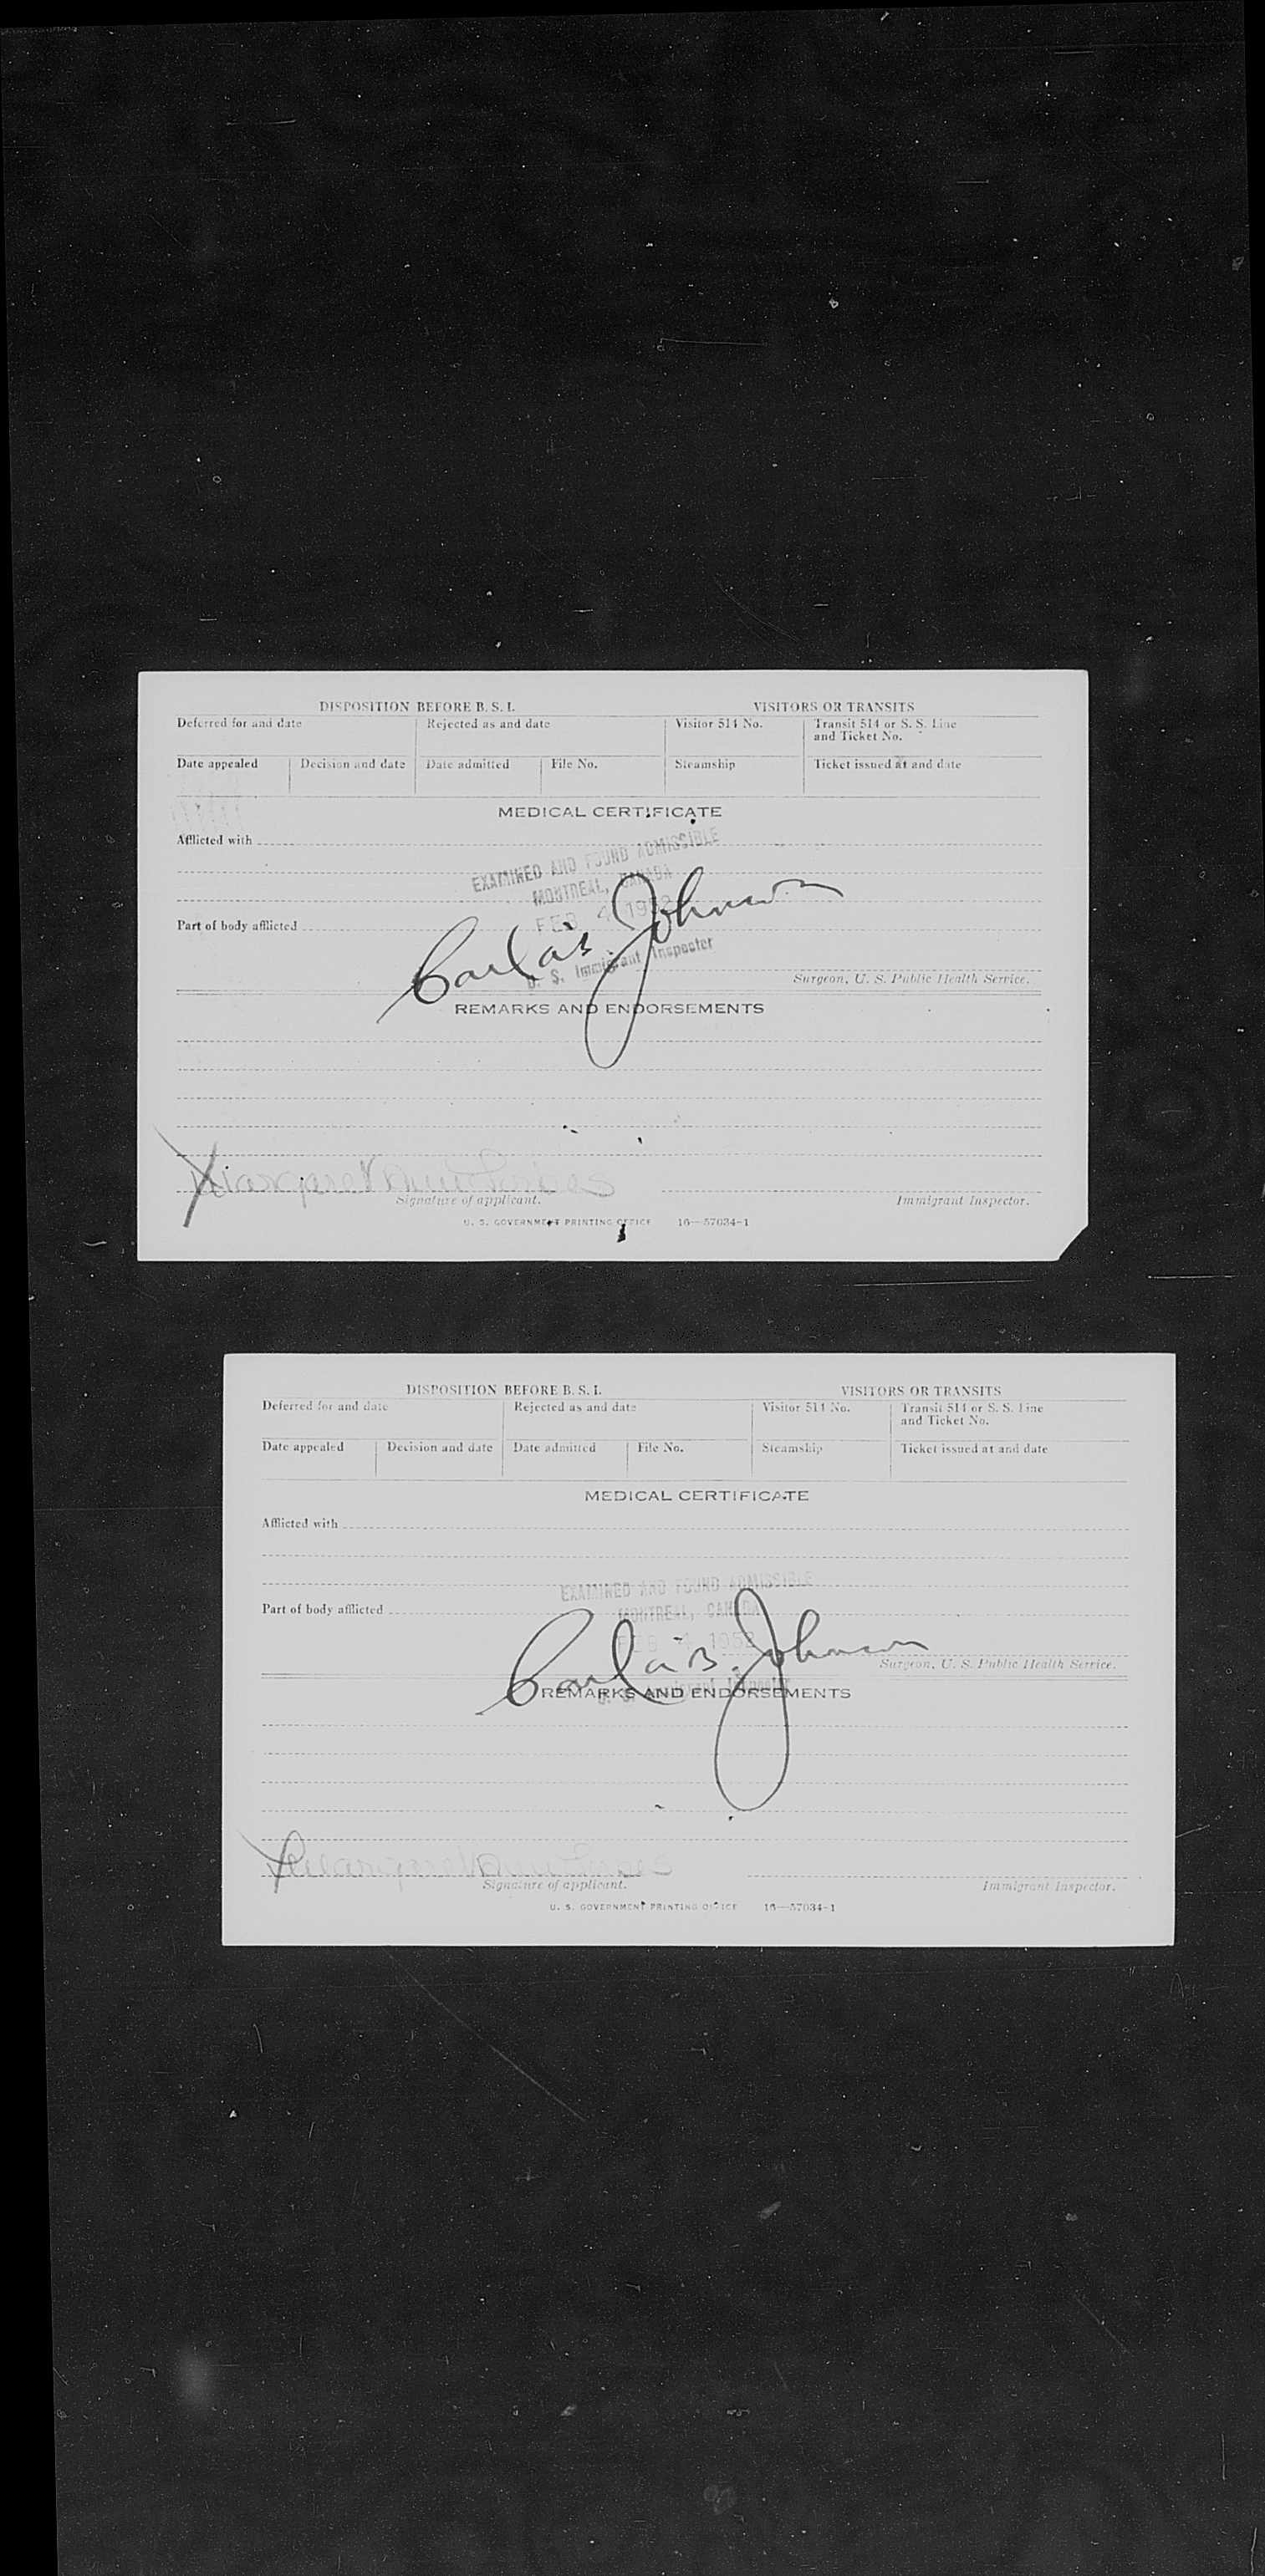 DISPOSITION BEFORE B. S. I. VISITORS OR TRANSITS
Deferred for and date Rejected as and date Visitor 514 No. Transit 514 or S. S. Line
and Ticket No.
Date appealed Decision and date Date admitted File No. Steamship Ticket issued at and date
MEDICAL CERTIFICATE
Afflicted with
EXAMINED AND FOUND ADMISSIBLE
MONTREAL, CANADA
FEB 4 1952
Part of body afflicted
Johnson
U. S. Immigrant Inspector
Surgeon, U. S. Public Health Service.
REMARKS AND ENDORSEMENTS
Margaret
Signature of applicant. Immigrant Inspector.
U. S. GOVERNMENT PRINTING OFFICE 16—57034-1
DISPOSITION BEFORE B. S. I. VISITORS OR TRANSITS
Deferred for and date Rejected as and date Visitor 514 No. Transit 514 or S. S. Line
and Ticket No.
Date appealed Decision and date Date admitted File No. Steamship Ticket issued at and date
MEDICAL CERTIFICATE
Afflicted with
EXAMINED AND FOUND ADMISSIBLE
Part of body afflicted
MONTREAL, CANADA
FEB 4 1952
Johnson
Surgeon, U. S. Public Health Service.
REMARKS AND ENDORSEMENTS
Margaret
Signature of applicant. Immigrant Inspector.
U. S. GOVERNMENT PRINTING OFFICE 16—57034-1